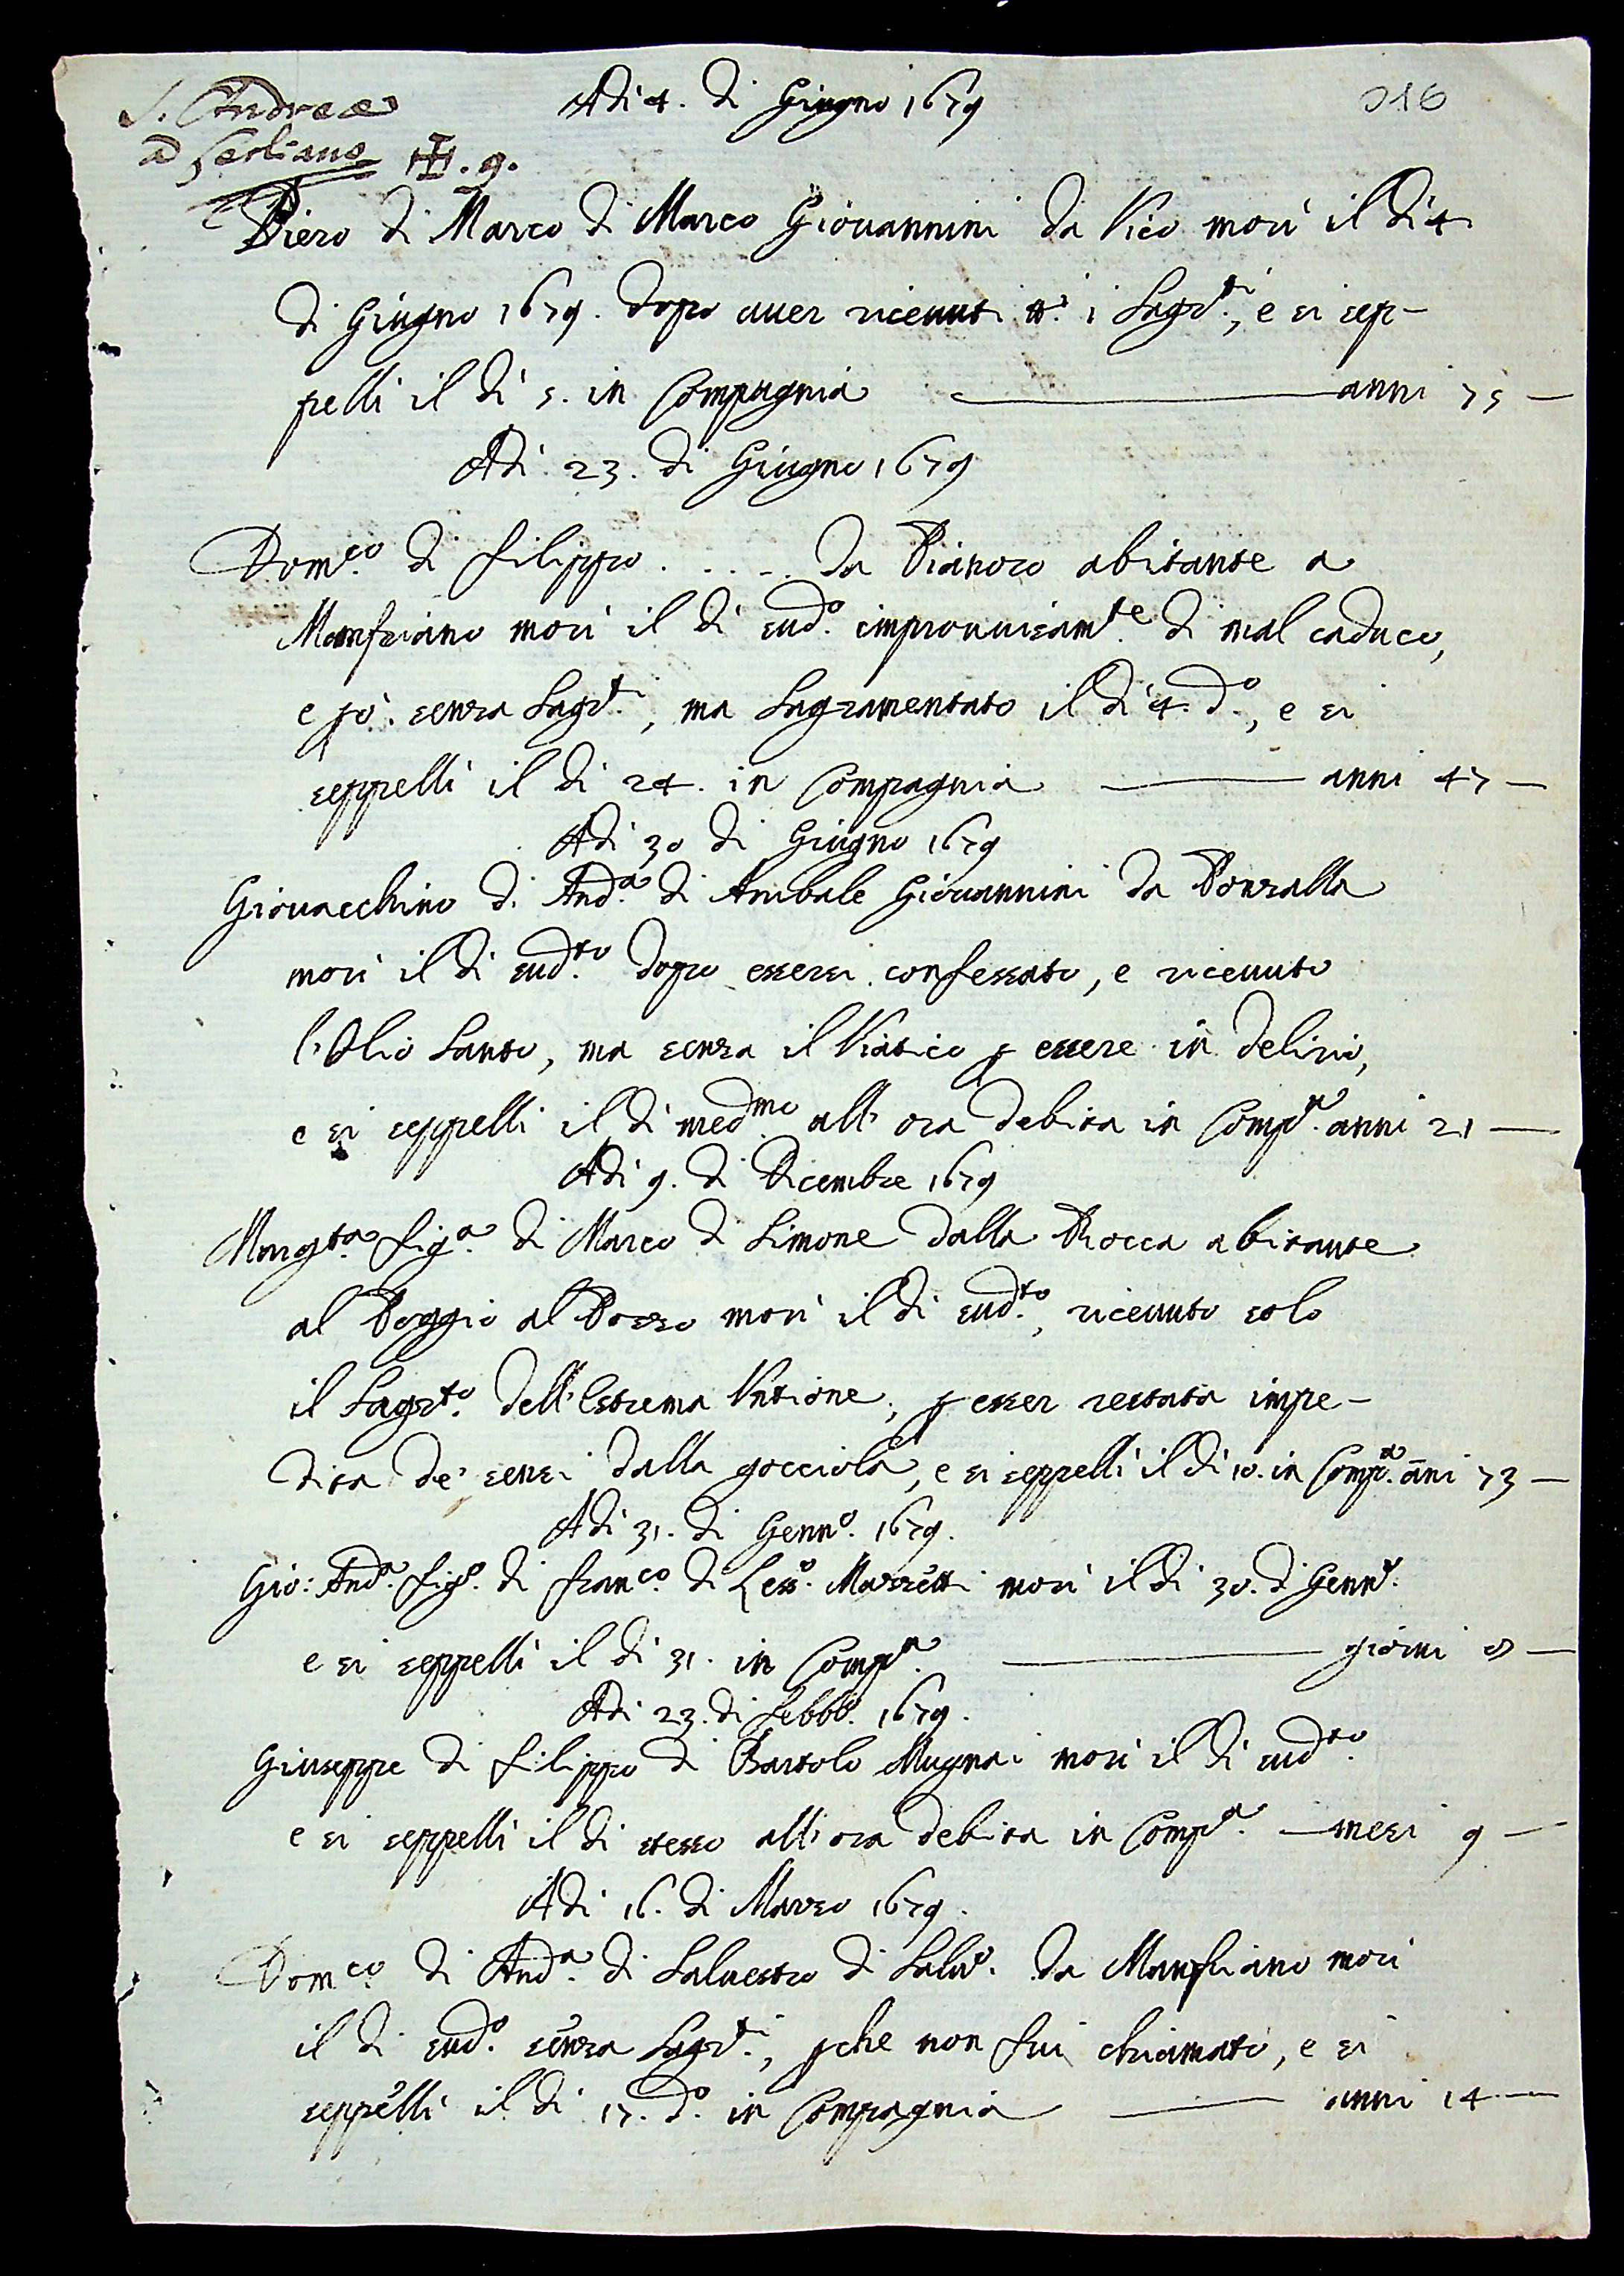 S. Andreae
a
Adi 4. di Giugno 1679
316
III. 9.
Piero di Marco di Marco Giouannini da Vico morì il dì 4.
di Giugno 1679. dopo auer riceuuti tt.i i Sagr.ti, e si sep-
pellì il dì 5. in Compagnia anni 75
Adi 23. di Giugno 1679
Dom.co di Filippo ..... da Pianoro abitante a
Monfriano morì il dì sud.o improuuisam.te di mal caduco,
e però senza Sagr.ti, ma Sagramentato il dì 4. d.o, e si
seppellì il dì 24. in Compagnia anni 47
Adi 30 di Giugno 1679
Giouacchino di And.a di Anibale Giouannini da Ponzalla
morì il dì sud.to dopo essersi confessato, e riceuuto
l'Olio Santo, ma senza il Viatico p essere in delirio,
e si seppellì il dì med.mo all' ora debita in Comp.a anni 21
Adi 9. di Dicembre 1679
Marg.ta fig.a di Marco di Simone dalla Rocca abitante
al Poggio al Pozzo morì il dì sud.to, riceuuto solo
il Sagr.to dell' Estrema Vntione, p esser restata impe-
dita de' sensi dalla gocciola, e si seppellì il dì 10. in Comp.a āni 73
Adi 31. di Genn.o 1679.
Gio: And.a fig.o di Fran.co di Less.o Mazzetti morì il dì 30. di Genn.o
e si seppellì il dì 31. in Comp.a giorni 8
Adi 23. di Febb.o 1679.
Giuseppe di Filippo di Bartolo Mugnai morì il dì sud.to
e si seppellì il dì stesso all' ora debita in Comp.a mesi 9
Adi 16. di Marzo 1679.
Dom.co di And.a di Saluestro di Salu.o da Manfriano morì
il dì sud.o senza Sagr.ti, pche non fui chiamato, e si
seppellì il dì 17. d.o in Compagnia anni 14